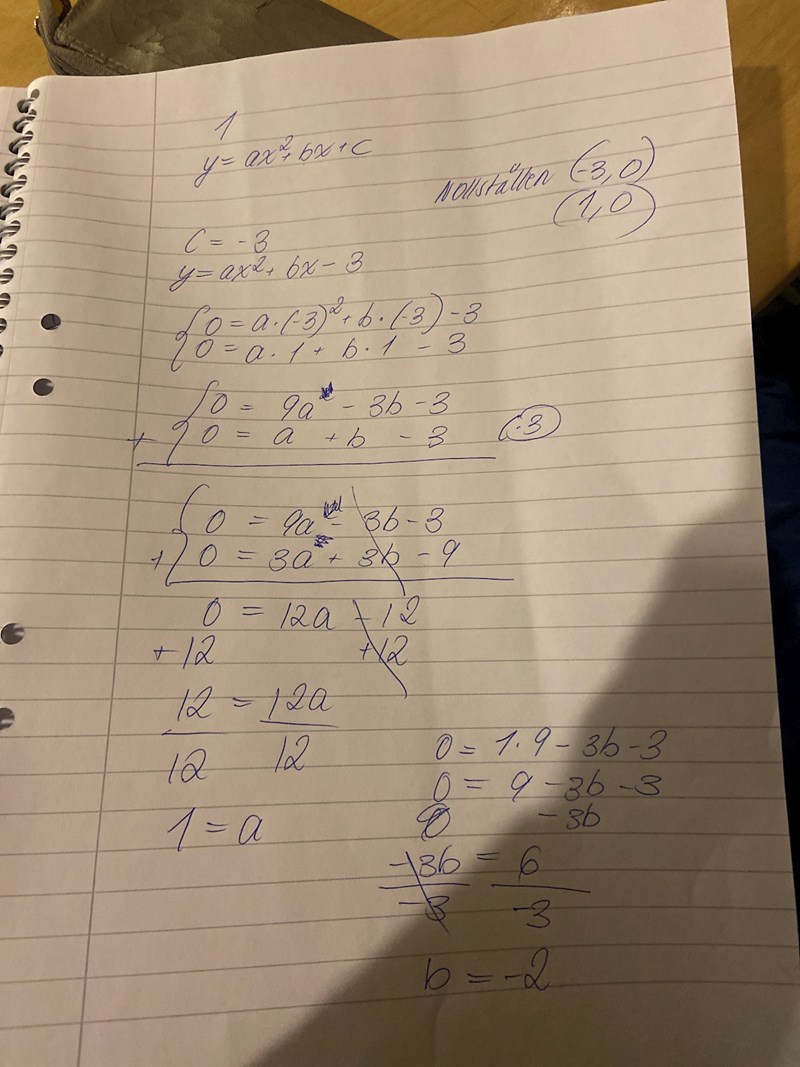 1
y = ax² + bx + c
Nollställen (-3,0)
(1,0)
C = -3
y = ax² + bx - 3
0 = a·(-3)² + b·(-3) - 3
0 = a·1 + b·1 - 3
0 = 9a - 3b - 3
+ 0 = a + b - 3 (·3)
0 = 9a - 3b - 3
+ 0 = 3a + 3b - 9
0 = 12a - 12
+12 +12
12 = 12a
12 12
1 = a
0 = 1·9 - 3b - 3
0 = 9 - 3b - 3
-3b
-3b = 6
-3 -3
b = -2